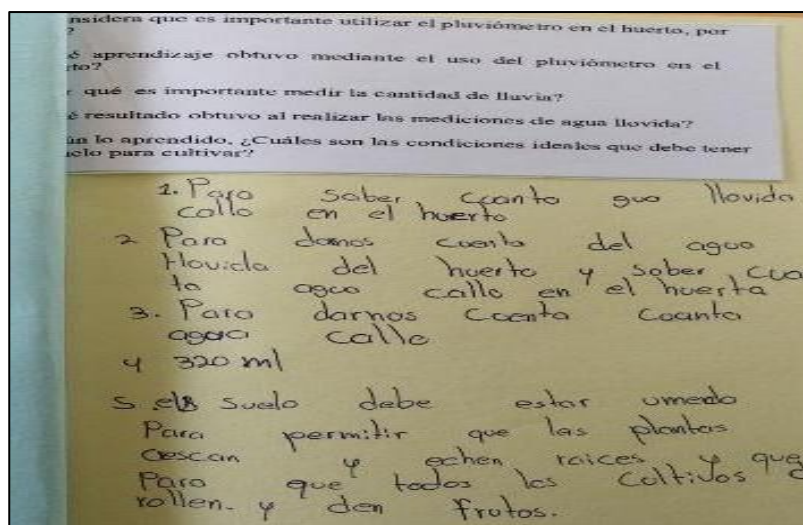 nsidera que es importante utilizar el pluviómetro en el huerto, por
?
é aprendizaje obtuvo mediante el uso del pluviómetro en el
rto?
r qué es importante medir la cantidad de lluvia?
é resultado obtuvo al realizar las mediciones de agua llovida?
ún lo aprendido, ¿Cuáles son las condiciones ideales que debe tener
uelo para cultivar?
1. Para saber cuanta gua llovida
callo en el huerto
2 Para darnos cuenta del agua
llovida del huerto y saber cua
ta agua calle en el huerta
3. Para darnos cuenta cuanta
agua calle
4 320 ml
5 el suelo debe estar umedo
Para permitir que las plantas
crescan y echen raices y que
Para que todos los cultivos
rollen. y den frutos.